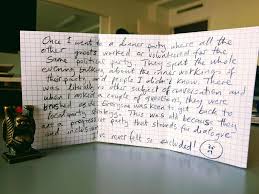 Once I went to a dinner party where all the
other guests worked or volunteered for the
same political party. They spent the whole
evening talking about the inner workings of
their party, and of people I didn't know. There
was literally no other subject of conversation and
when I asked a couple of questions, they were
brushed aside. Everyone was keen to get back to
local party stinking. This was all because they
are a progressive party that stands for dialogue
and inclusion
I've never felt so excluded!